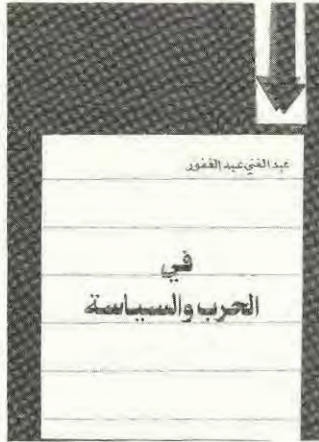 عبد الغني عبد الغفور
في
الحرب والسياسة